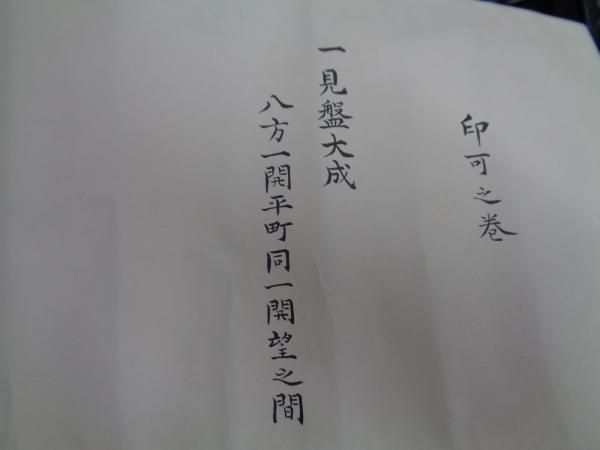 印可之巻
一見盤大成
八方一開平町同一開望之間